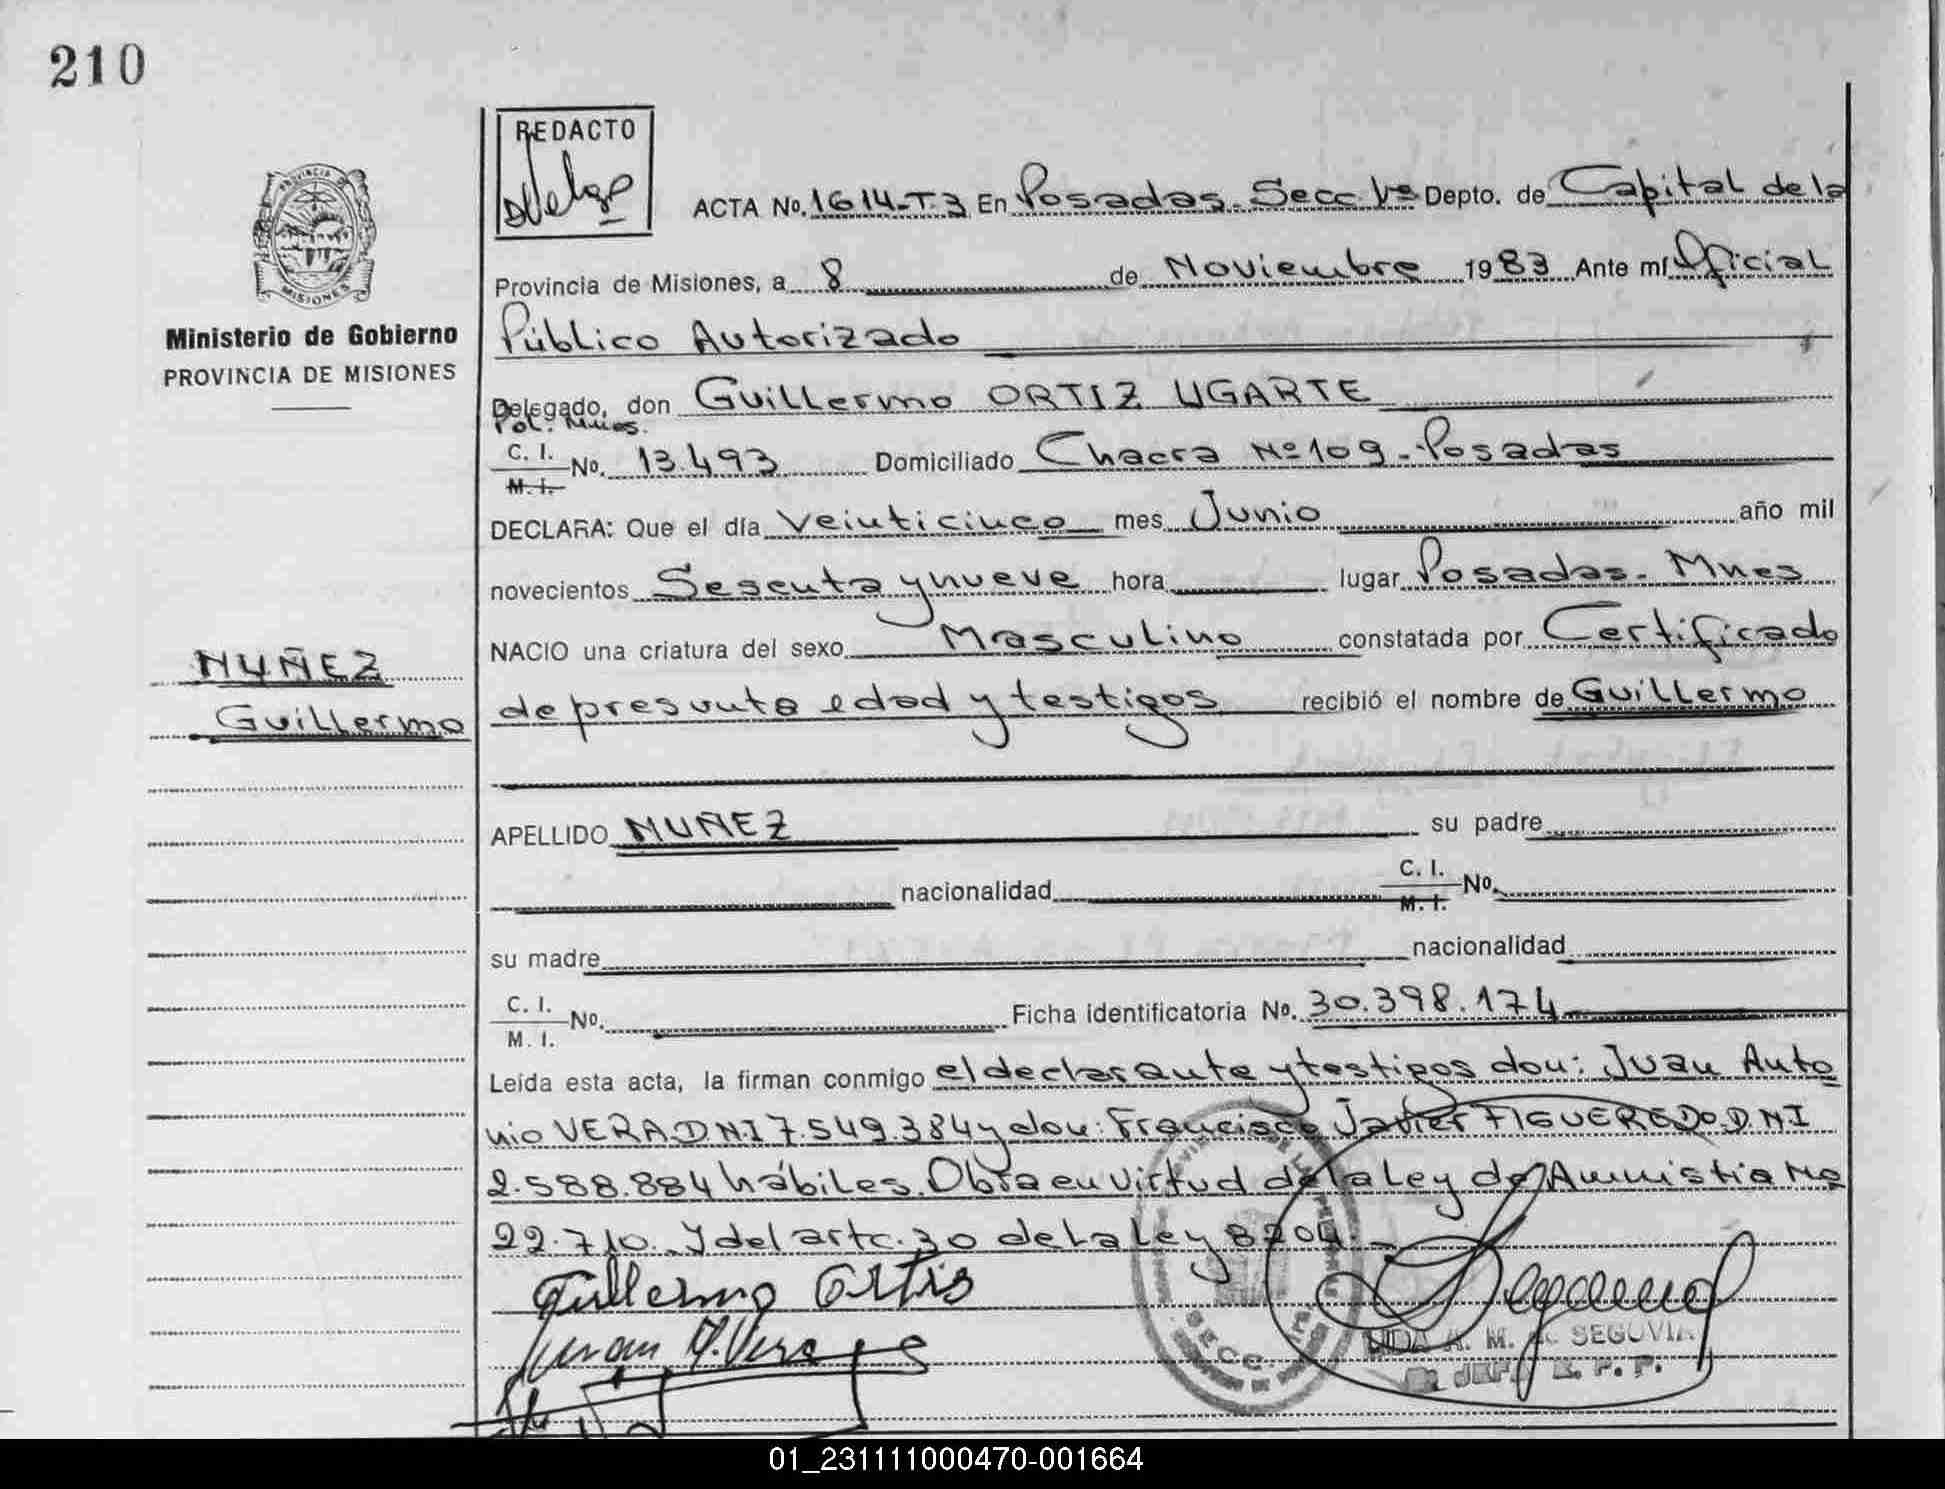 210
REDACTO
ACTA No. 1614-T.3 En Posadas. Secc. 1ª Depto. de Capital de la
Provincia de Misiones, a 8 de Noviembre 1983 Ante mí Oficial
Público Autorizado
Delegado, don Guillermo ORTIZ UGARTE
Pol. Mnes.
C. I. No. 13.493 Domiciliado Chacra Nº 109 - Posadas
M. I.
DECLARA: Que el día Veinticinco mes Junio año mil
novecientos Sesenta y nueve hora lugar Posadas. Mnes
NACIO una criatura del sexo Masculino constatada por Certificado
de presunta edad y testigos recibió el nombre de Guillermo
APELLIDO NUÑEZ su padre
nacionalidad C. I. No.
M. I.
su madre nacionalidad
C. I. No. Ficha identificatoria No. 30.398.174
M. I.
Leída esta acta, la firman conmigo el declarante y testigos don: Juan Anto
nio VERA DNI 7.549.384 y don: Francisco Javier FIGUEREDO. DNI
2.588.884 hábiles. Obra en virtud de la ley de Amnistia No
22.710. Y del artc. 30 de la ley 8204. -
Guillermo Ortis
Juan A. Vera
SECC. 1ª
A. M. SEGOVIA
PROVINCIA DE
MISIONES
Ministerio de Gobierno
PROVINCIA DE MISIONES
NUÑEZ
Guillermo
01_231111000470-001664